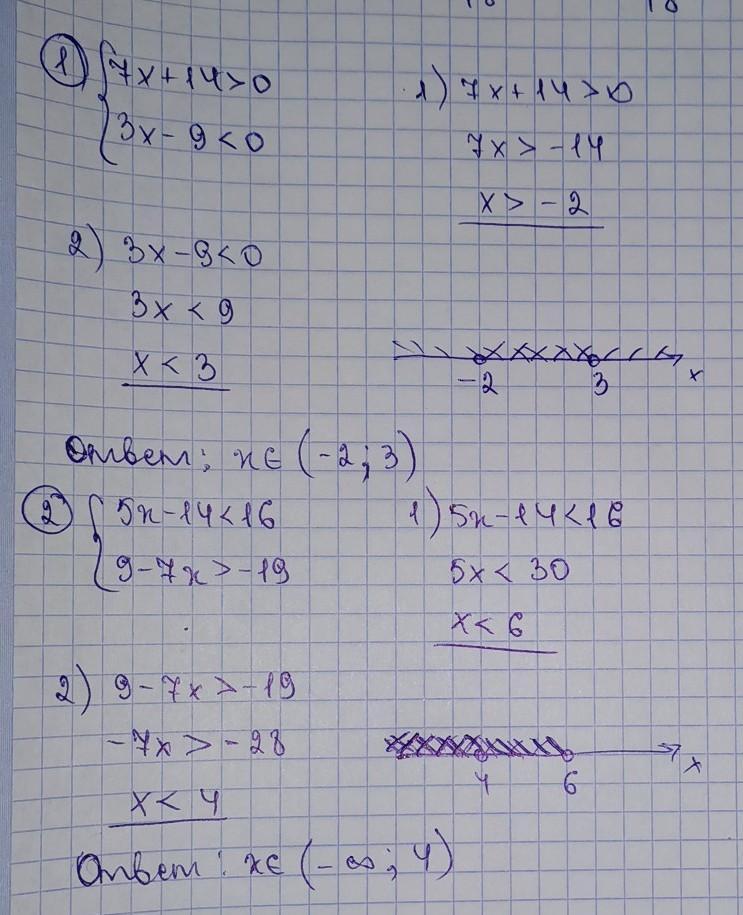 1 { 7x+14>0
3x-9<0
1) 7x+14>0
7x>-14
x>-2
2) 3x-9<0
3x<9
x<3
-2 3 x
Ответ: x∈(-2;3)
2 { 5x-14<16
9-7x>-19
1) 5x-14<16
5x<30
x<6
2) 9-7x>-19
-7x>-28
x<4
4 6 x
Ответ: x∈(-∞;4)